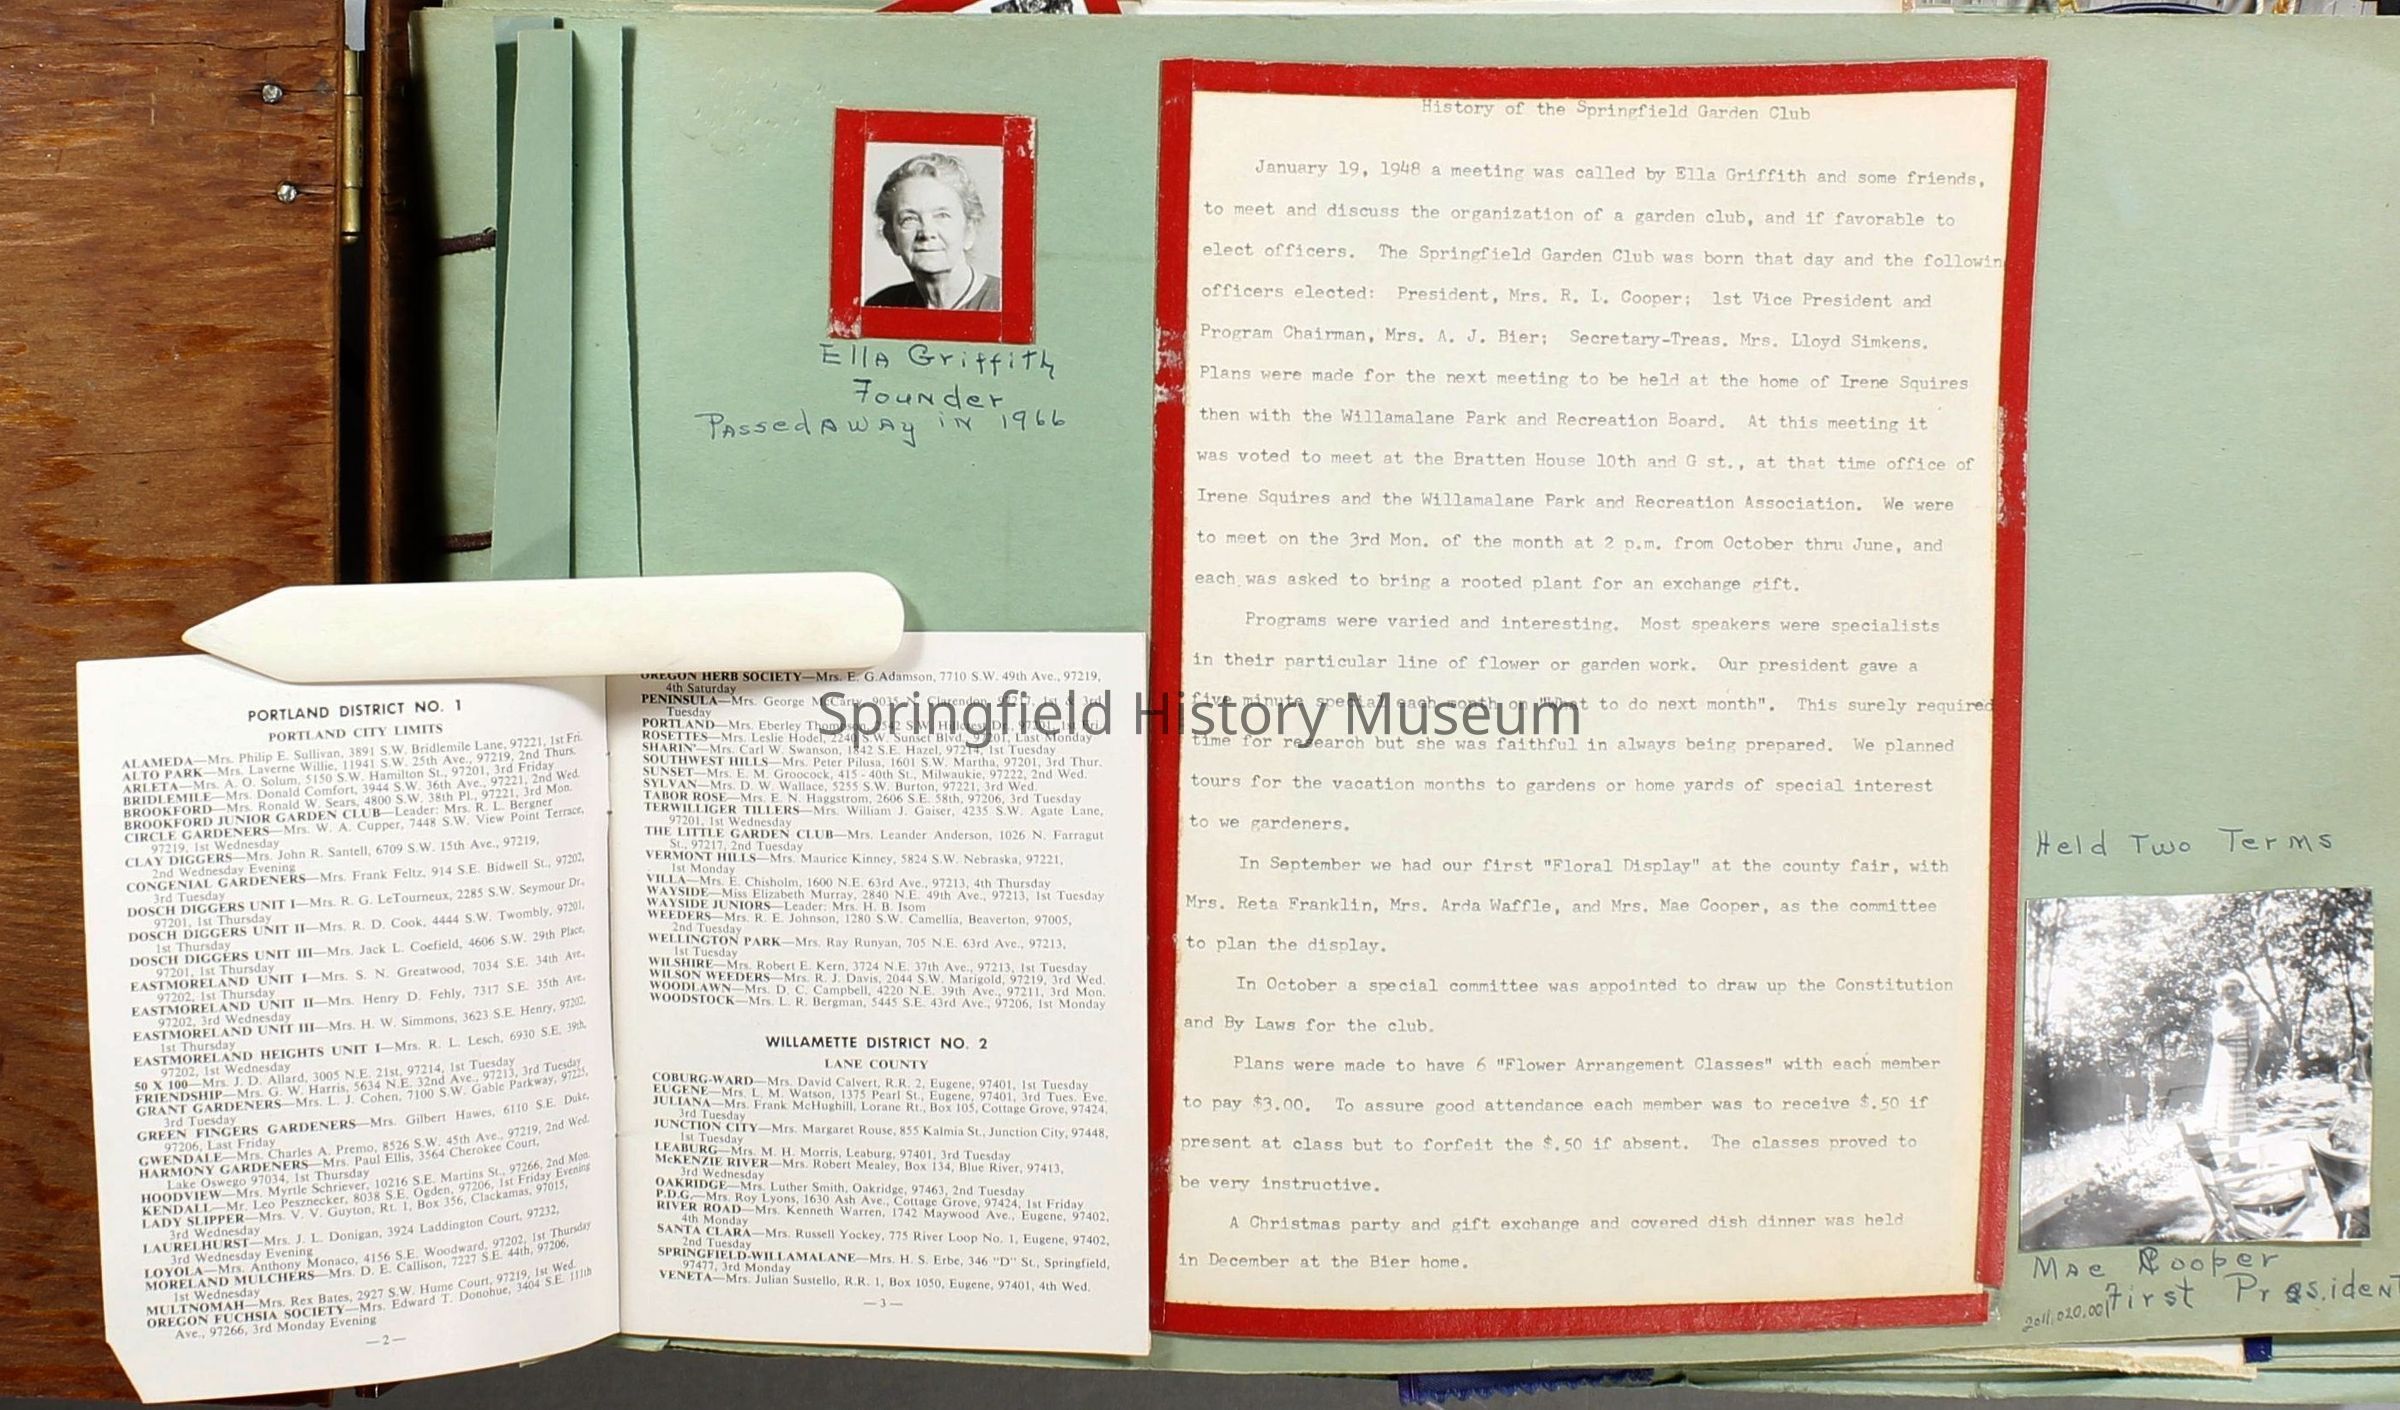 Ella Griffith
Founder
Passed Away in 1966
History of the Springfield Garden Club
January 19, 1948 a meeting was called by Ella Griffith and some friends,
to meet and discuss the organization of a garden club, and if favorable to
elect officers. The Springfield Garden Club was born that day and the followin
officers elected: President, Mrs. R. I. Cooper; 1st Vice President and
Program Chairman, Mrs. A. J. Bier; Secretary-Treas. Mrs. Lloyd Simkens.
Plans were made for the next meeting to be held at the home of Irene Squires
then with the Willamalane Park and Recreation Board. At this meeting it
was voted to meet at the Bratten House 10th and G st., at that time office of
Irene Squires and the Willamalane Park and Recreation Association. We were
to meet on the 3rd Mon. of the month at 2 p.m. from October thru June, and
each was asked to bring a rooted plant for an exchange gift.
Programs were varied and interesting. Most speakers were specialists
in their particular line of flower or garden work. Our president gave a
five minute special each month on "What to do next month". This surely required
time for research but she was faithful in always being prepared. We planned
tours for the vacation months to gardens or home yards of special interest
to we gardeners.
In September we had our first "Floral Display" at the county fair, with
Mrs. Reta Franklin, Mrs. Arda Waffle, and Mrs. Mae Cooper, as the committee
to plan the display.
In October a special committee was appointed to draw up the Constitution
and By Laws for the club.
Plans were made to have 6 "Flower Arrangement Classes" with each member
to pay $3.00. To assure good attendance each member was to receive $.50 if
present at class but to forfeit the $.50 if absent. The classes proved to
be very instructive.
A Christmas party and gift exchange and covered dish dinner was held
in December at the Bier home.
Held Two Terms
Mae Cooper
First President
2011.020.001
Springfield History Museum
PORTLAND DISTRICT NO. 1
PORTLAND CITY LIMITS
ALAMEDA—Mrs. Philip E. Sullivan, 3891 S.W. Bridlemile Lane, 97221, 1st Fri.
ALTO PARK—Mrs. Laverne Willie, 11941 S.W. 25th Ave., 97219, 2nd Thurs.
ARLETA—Mrs. A. O. Solum, 5150 S.W. Hamilton St., 97201, 3rd Friday
BRIDLEMILE—Mrs. Donald Comfort, 3944 S.W. 36th Ave., 97221, 2nd Wed.
BROOKFORD—Mrs. Ronald W. Sears, 4800 S.W. 38th Pl., 97221, 3rd Mon.
BROOKFORD JUNIOR GARDEN CLUB—Leader: Mrs. R. L. Bergner
CIRCLE GARDENERS—Mrs. W. A. Cupper, 7448 S.W. View Point Terrace,
97219, 1st Wednesday
CLAY DIGGERS—Mrs. John R. Santell, 6709 S.W. 15th Ave., 97219,
2nd Wednesday Evening
CONGENIAL GARDENERS—Mrs. Frank Feltz, 914 S.E. Bidwell St., 97202,
3rd Tuesday
DOSCH DIGGERS UNIT I—Mrs. R. G. LeTourneux, 2285 S.W. Seymour Dr.,
97201, 1st Thursday
DOSCH DIGGERS UNIT II—Mrs. R. D. Cook, 4444 S.W. Twombly, 97201,
1st Thursday
DOSCH DIGGERS UNIT III—Mrs. Jack L. Coefield, 4606 S.W. 29th Place,
97201, 1st Thursday
EASTMORELAND UNIT I—Mrs. S. N. Greatwood, 7034 S.E. 34th Ave.,
97202, 1st Thursday
EASTMORELAND UNIT II—Mrs. Henry D. Fehly, 7317 S.E. 35th Ave.,
97202, 3rd Wednesday
EASTMORELAND UNIT III—Mrs. H. W. Simmons, 3623 S.E. Henry, 97202,
1st Thursday
EASTMORELAND HEIGHTS UNIT I—Mrs. R. L. Lesch, 6930 S.E. 39th,
97202, 1st Wednesday
50 X 100—Mrs. J. D. Allard, 3005 N.E. 21st, 97214, 1st Tuesday
FRIENDSHIP—Mrs. G. W. Harris, 5634 N.E. 32nd Ave., 97213, 3rd Tuesday
GRANT GARDENERS—Mrs. L. J. Cohen, 7100 S.W. Gable Parkway, 97225,
3rd Tuesday
GREEN FINGERS GARDENERS—Mrs. Gilbert Hawes, 6110 S.E. Duke,
97206, Last Friday
GWENDALE—Mrs. Charles A. Premo, 8526 S.W. 45th Ave., 97219, 2nd Wed.
HARMONY GARDENERS—Mrs. Paul Ellis, 3564 Cherokee Court,
Lake Oswego 97034, 1st Thursday
HOODVIEW—Mrs. Myrtle Schriever, 10216 S.E. Martins St., 97266, 2nd Mon.
KENDALL—Mr. Leo Pesznecker, 8038 S.E. Ogden, 97206, 1st Friday Evening
LADY SLIPPER—Mrs. V. V. Guyton, Rt. 1, Box 356, Clackamas, 97015,
3rd Wednesday
LAURELHURST—Mrs. J. L. Donigan, 3924 Laddington Court, 97232,
3rd Wednesday Evening
LOYOLA—Mrs. Anthony Monaco, 4156 S.E. Woodward, 97202, 1st Thursday
MORELAND MULCHERS—Mrs. D. E. Callison, 7227 S.E. 44th, 97206,
1st Wednesday
MULTNOMAH—Mrs. Rex Bates, 2927 S.W. Hume Court, 97219, 1st Wed.
OREGON FUCHSIA SOCIETY—Mrs. Edward T. Donohue, 3404 S.E. 111th
Ave., 97266, 3rd Monday Evening
—2—
OREGON HERB SOCIETY—Mrs. E. G.Adamson, 7710 S.W. 49th Ave., 97219,
4th Saturday
PENINSULA—Mrs. George McCarty, 9035 N. Clarendon, 97217, 1st & 3rd
Tuesday
PORTLAND—Mrs. Eberley Thompson, S.W. Hillcrest Dr., 97201, 1st Fri.
ROSETTES—Mrs. Leslie Hodel, 2240 S.W. Sunset Blvd., 97201, Last Monday
SHARIN'—Mrs. Carl W. Swanson, 1842 S.E. Hazel, 97214, 1st Tuesday
SOUTHWEST HILLS—Mrs. Peter Pilusa, 1601 S.W. Martha, 97201, 3rd Thur.
SUNSET—Mrs. E. M. Groocock, 415 - 40th St., Milwaukie, 97222, 2nd Wed.
SYLVAN—Mrs. D. W. Wallace, 5255 S.W. Burton, 97221, 3rd Wed.
TABOR ROSE—Mrs. E. N. Haggstrom, 2606 S.E. 58th, 97206, 3rd Tuesday
TERWILLIGER TILLERS—Mrs. William J. Gaiser, 4235 S.W. Agate Lane,
97201, 1st Wednesday
THE LITTLE GARDEN CLUB—Mrs. Leander Anderson, 1026 N. Farragut
St., 97217, 2nd Tuesday
VERMONT HILLS—Mrs. Maurice Kinney, 5824 S.W. Nebraska, 97221,
1st Monday
VILLA—Mrs. E. Chisholm, 1600 N.E. 63rd Ave., 97213, 4th Thursday
WAYSIDE—Miss Elizabeth Murray, 2840 N.E. 49th Ave., 97213, 1st Tuesday
WAYSIDE JUNIORS—Leader: Mrs. H. B. Isom
WEEDERS—Mrs. R. E. Johnson, 1280 S.W. Camellia, Beaverton, 97005,
2nd Tuesday
WELLINGTON PARK—Mrs. Ray Runyan, 705 N.E. 63rd Ave., 97213,
1st Tuesday
WILSHIRE—Mrs. Robert E. Kern, 3724 N.E. 37th Ave., 97213, 1st Tuesday
WILSON WEEDERS—Mrs. R. J. Davis, 2044 S.W. Marigold, 97219, 3rd Wed.
WOODLAWN—Mrs. D. C. Campbell, 4220 N.E. 39th Ave., 97211, 3rd Mon.
WOODSTOCK—Mrs. L. R. Bergman, 5445 S.E. 43rd Ave., 97206, 1st Monday
WILLAMETTE DISTRICT NO. 2
LANE COUNTY
COBURG-WARD—Mrs. David Calvert, R.R. 2, Eugene, 97401, 1st Tuesday
EUGENE—Mrs. L. M. Watson, 1375 Pearl St., Eugene, 97401, 3rd Tues. Eve.
JULIANA—Mrs. Frank McHughill, Lorane Rt., Box 105, Cottage Grove, 97424,
3rd Tuesday
JUNCTION CITY—Mrs. Margaret Rouse, 855 Kalmia St., Junction City, 97448,
1st Tuesday
LEABURG—Mrs. M. H. Morris, Leaburg, 97401, 3rd Tuesday
McKENZIE RIVER—Mrs. Robert Mealey, Box 134, Blue River, 97413,
3rd Wednesday
OAKRIDGE—Mrs. Luther Smith, Oakridge, 97463, 2nd Tuesday
P.D.G.—Mrs. Roy Lyons, 1630 Ash Ave., Cottage Grove, 97424, 1st Friday
RIVER ROAD—Mrs. Kenneth Warren, 1742 Maywood Ave., Eugene, 97402,
4th Monday
SANTA CLARA—Mrs. Russell Yockey, 775 River Loop No. 1, Eugene, 97402,
2nd Tuesday
SPRINGFIELD-WILLAMALANE—Mrs. H. S. Erbe, 346 "D" St., Springfield,
97477, 3rd Monday
VENETA—Mrs. Julian Sustello, R.R. 1, Box 1050, Eugene, 97401, 4th Wed.
—3—